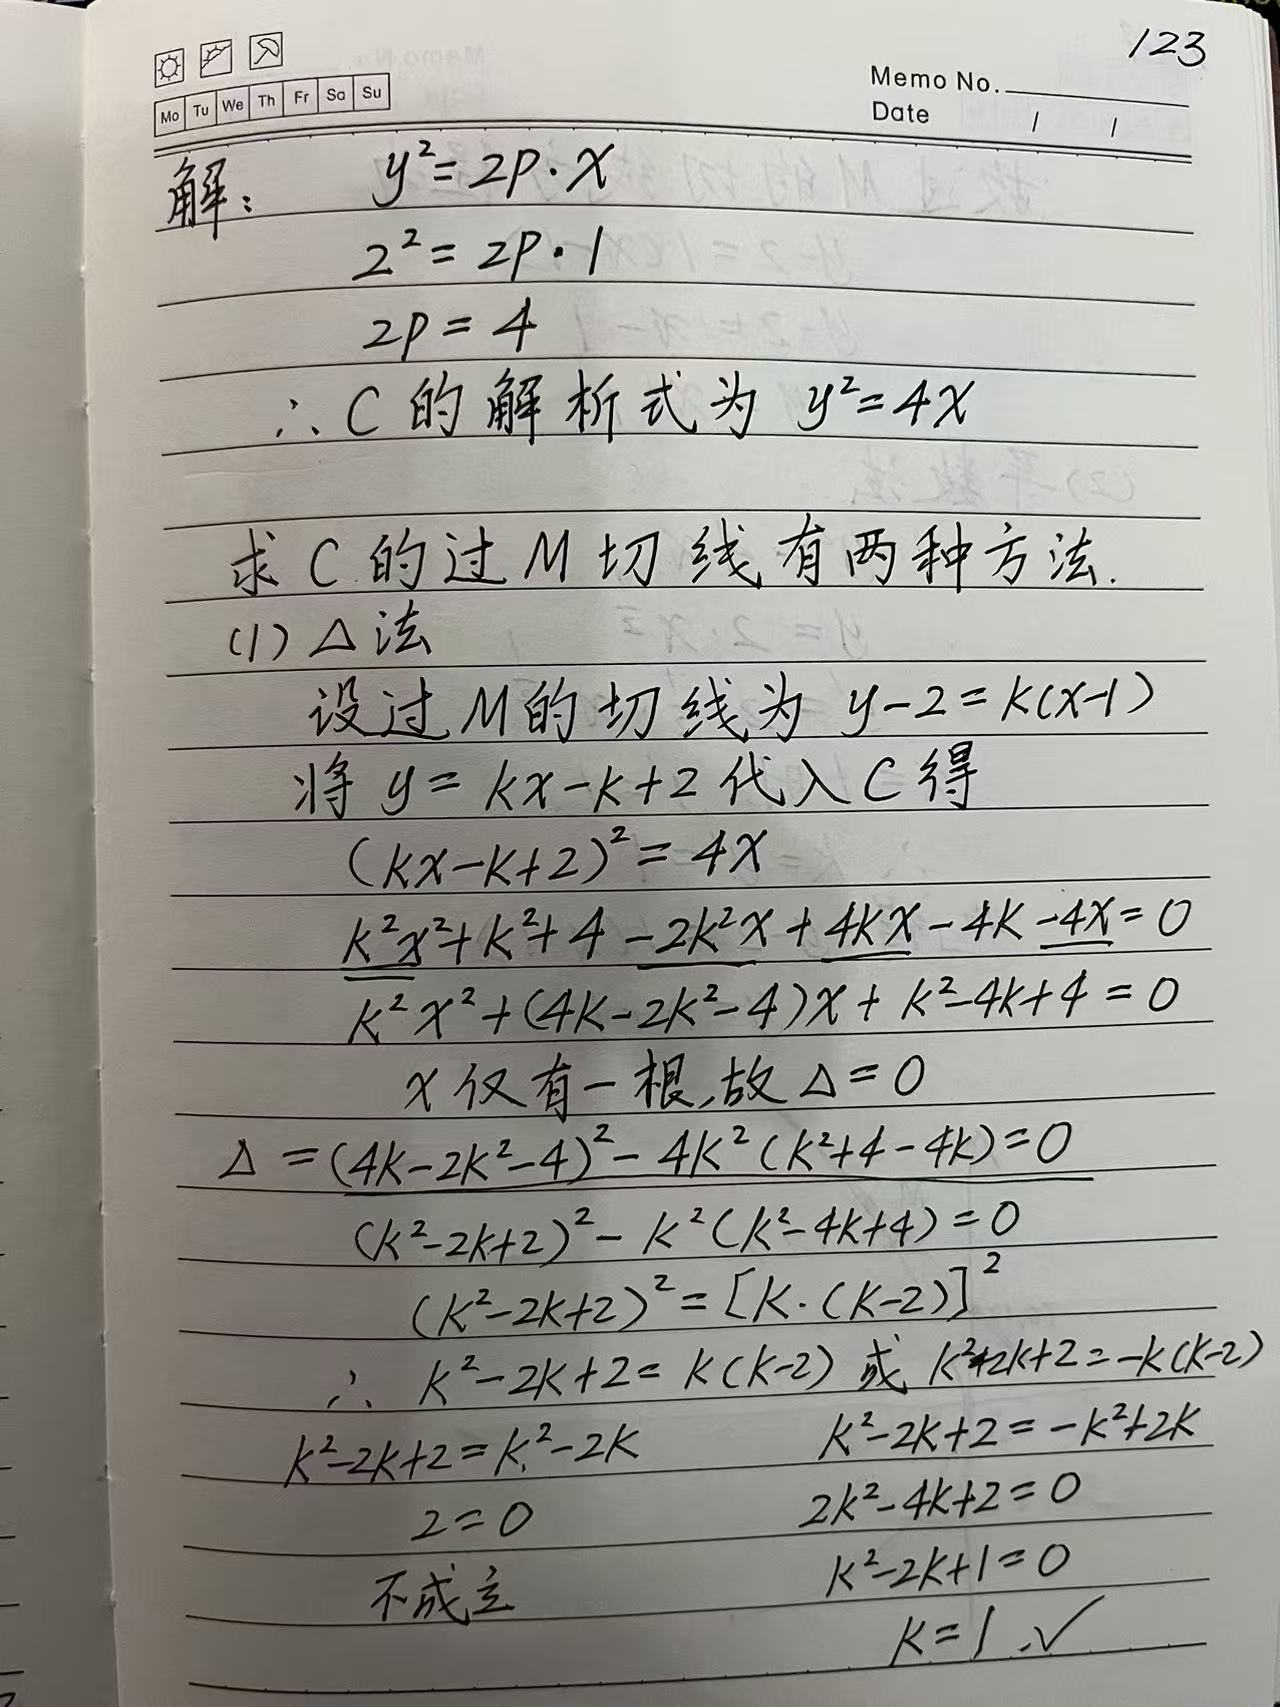 123
Mo Tu We Th Fr Sa Su
Memo No.
Date / /
解: y²=2P·x
2²=2P·1
2P=4
∴C的解析式为 y²=4x
求C的过M切线有两种方法.
(1) △法
设过M的切线为 y-2=k(x-1)
将 y=kx-k+2代入C得
(kx-k+2)²=4x
k²x²+k²+4-2k²x+4kx-4k-4x=0
k²x²+(4k-2k²-4)x+k²-4k+4=0
x仅有一根,故△=0
△=(4k-2k²-4)²-4k²(k²+4-4k)=0
(k²-2k+2)²-k²(k²-4k+4)=0
(k²-2k+2)²=[k·(k-2)]²
∴ k²-2k+2=k(k-2) 或 k²-2k+2=-k(k-2)
k²-2k+2=k²-2k k²-2k+2=-k²+2k
2=0 2k²-4k+2=0
不成立 k²-2k+1=0
k=1.✓